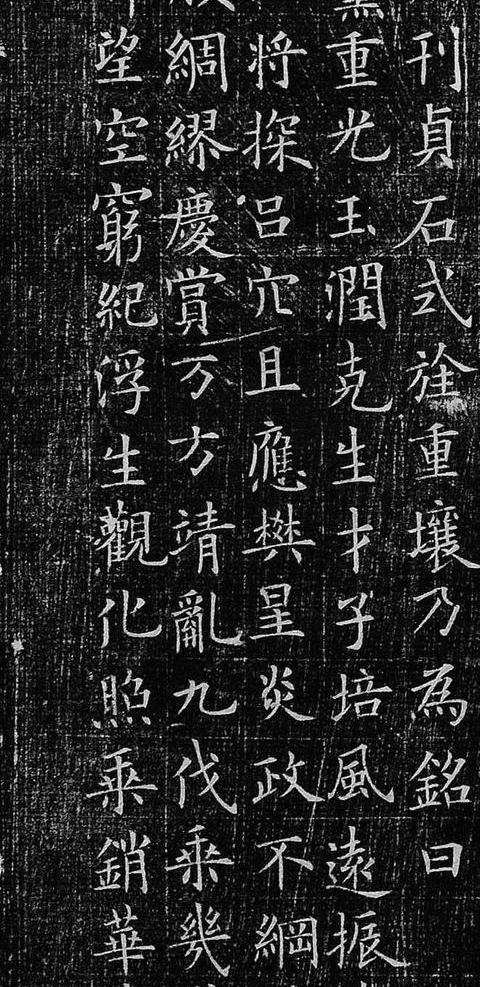 刊貞石式旌重壤乃為銘曰
重光玉潤克生才子培風遠振
将探呂穴且應樊星炎政不綱
綢繆慶賞万方靖亂九伐乘幾
望空窮紀浮生觀化照乘銷華